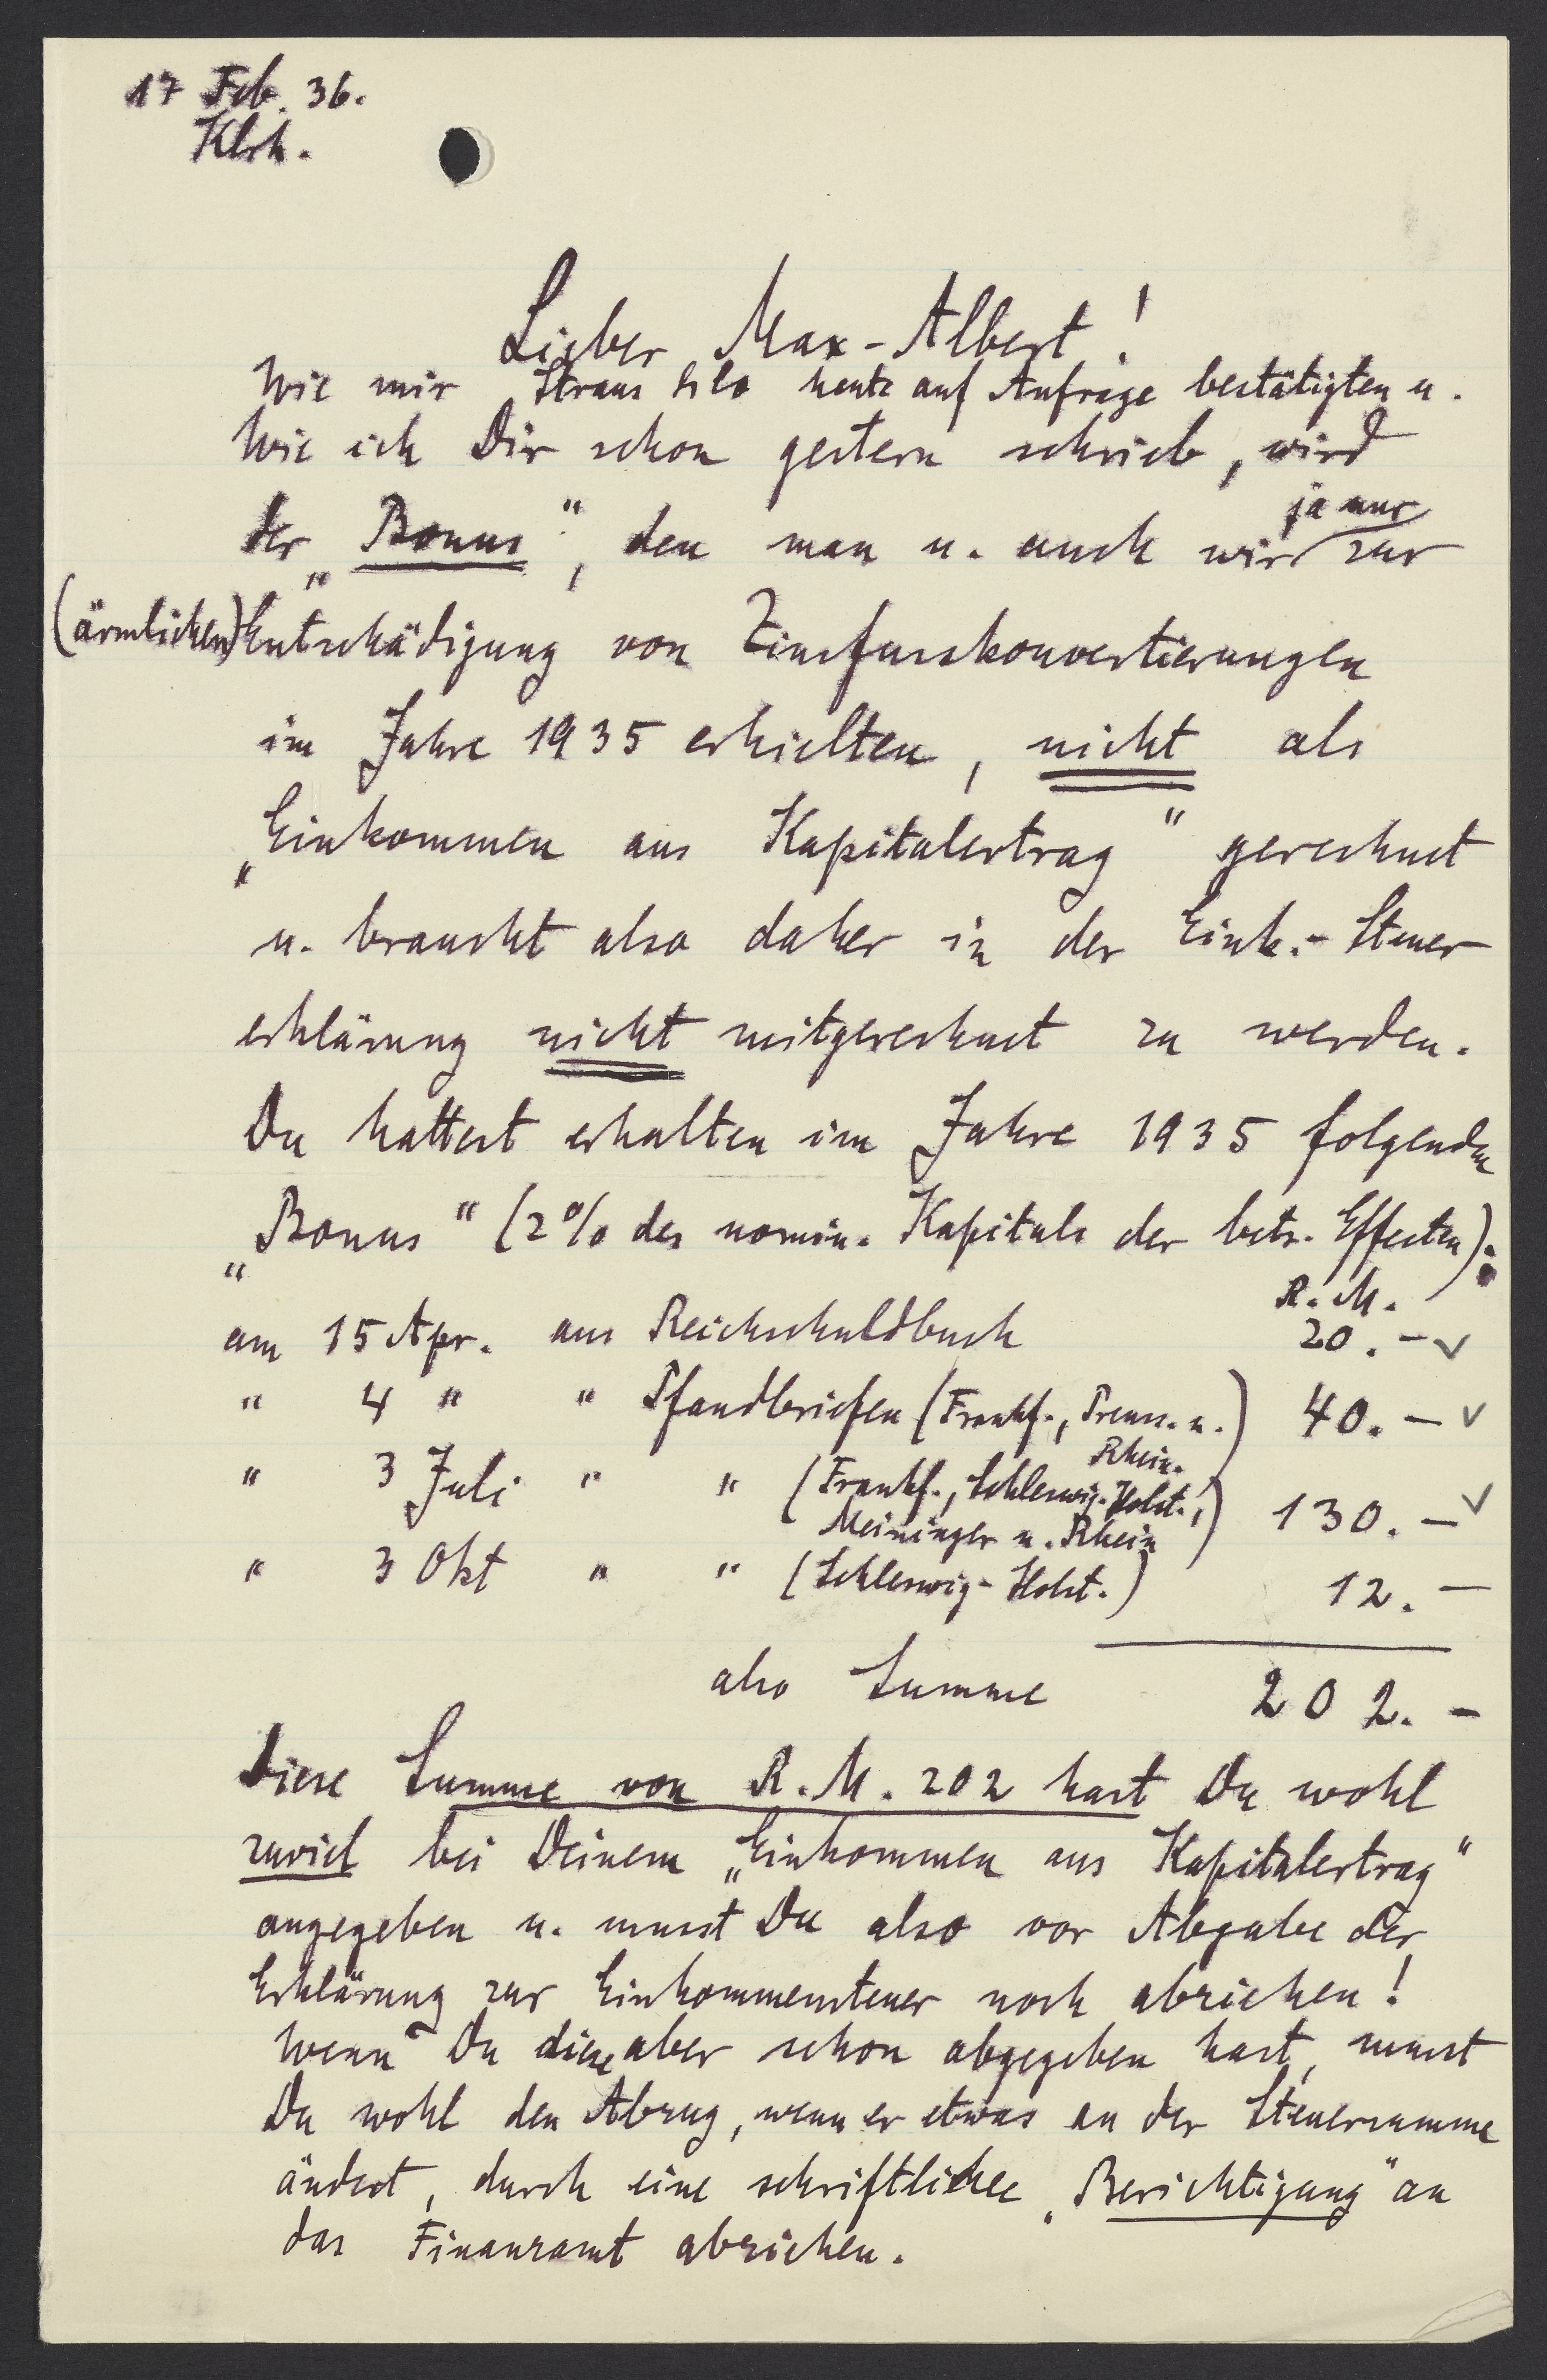 17 Feb. 36.
Klrh.
Lieber Max-Albert!
Wie mir Straus & Co heute auf Anfrage bestätigten u.
Wie ich Dir schon gestern schrieb, wird
der „Bonus“, den man u. auch wir ja nur zur
(ärmlichen) Entschädigung von Zinsfusskonvertierungen
im Jahre 1935 erhielten, nicht als
„Einkommen aus Kapitalertrag“ gerechnet
u. braucht also daher in der Eink.-Steuer
erklärung nicht mitgerechnet zu werden.
Du hattest erhalten im Jahre 1935 folgenden
„Bonus“ (2% des nomin. Kapitals der betr. Effecten):
R.M.
am 15 Apr. aus Reichschuldbuch 20.-
" 4 " " Pfandbriefen (Frankf., Preuss. u. Rhein.) 40.-
" 3 Juli " " (Frankf., Schleswig-Holst.,
Meininger u. Rhein) 130.-
" 3 Okt " " (Schleswig-Holst.) 12.-
also Summe 202.-
Diese Summe von R.M. 202 hast Du wohl
zuviel bei Deinem „Einkommen aus Kapitalertrag“
angegeben u. musst Du also vor Abgabe der
Erklärung zur Einkommensteuer noch abziehen!
Wenn Du diese aber schon abgegeben hast, musst
Du wohl den Abzug, wenn er etwas an der Steuersumme
ändert, durch eine schriftliche „Berichtigung“ an
das Finanzamt abziehen.